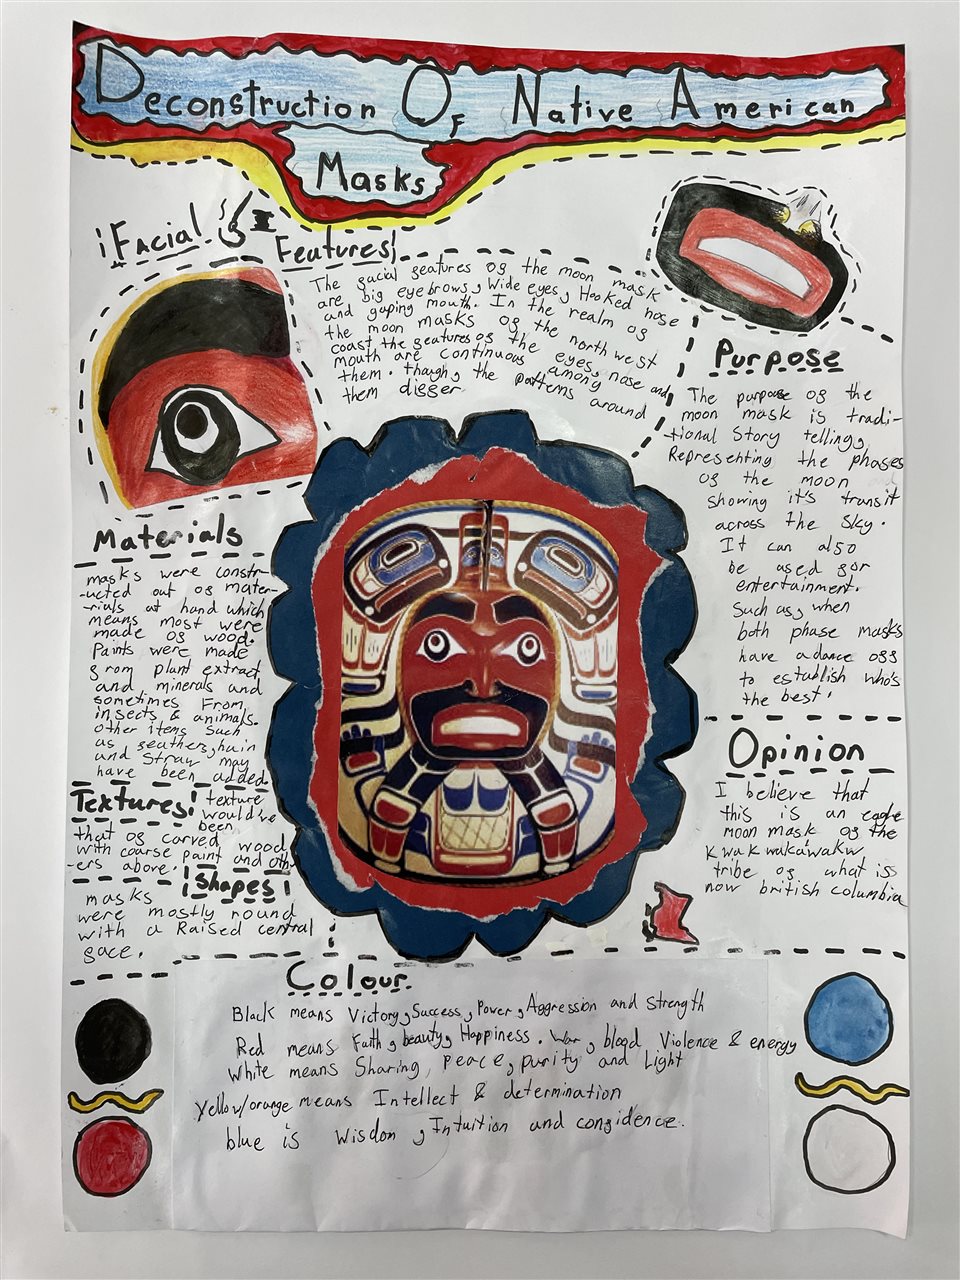 Deconstruction Of Native American
Masks
Facial
Features!
The facial features of the moon mask
are big eyebrows, Wide eyes, Hooked nose
and gaping mouth. In the realm of
the moon masks of the northwest
coast the features of the eyes, nose and
mouth are continuous among
them. though, the patterns around
them differ
Purpose
The purpose of the
moon mask is tradi-
-tional Story telling,
Representing the phases
of the moon and
showing it's transit
across the sky.
It can also
be used for
entertainment.
Such as, when
both phase masks
have a dance off
to establish who's
the best!
Materials
masks were constr-
-ucted out of mater-
-rials at hand which
means most were
made of wood.
Paints were made
from plant extract
and minerals and
sometimes From
insects & animals.
Other items Such
as feathers, hair
and Straw may
have been added.
Textures! texture
would've
been
that of carved wood
with coarse paint and oth-
-ers above.
Shapes!
masks
were mostly round
with a Raised central
face.
Opinion
I believe that
this is an eagle
moon mask of the
Kwakwaka'wakw
tribe of what is
now british columbia
Colour.
Black means Victory, Success, Power, Aggression and Strength
Red means Faith, beauty, Happiness. War, blood Violence & energy
White means Sharing, peace, purity and Light
Yellow/orange means Intellect & determination
blue is Wisdom, Intuition and confidence.